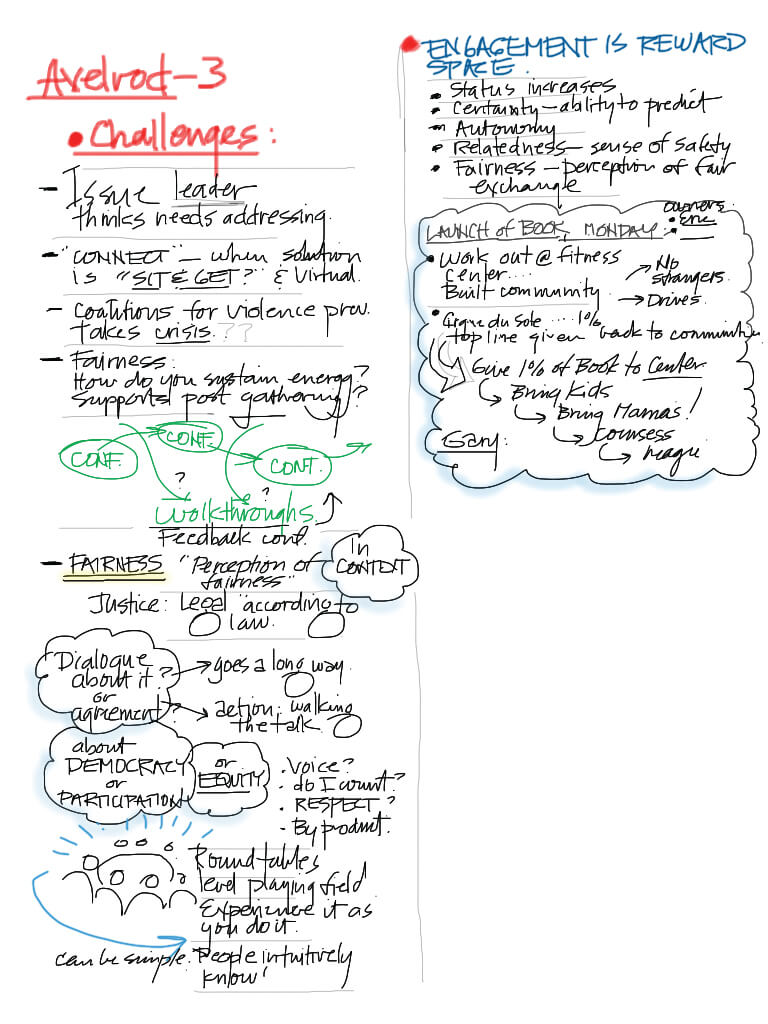 Axelrod-3
• Challenges:
- Issue leader
thinks needs addressing.
- "CONNECT" - when solution
is "SIT & GET?" & virtual.
- Coalitions for violence prev.
takes crisis.??
- Fairness:
How do you systain energy?
supports post gathering?
CONF. CONF. CONT.
? ?
Walkthroughs.
Feedback conf.
- FAIRNESS "Perception of
fairness"
in
CONTEXT
Justice: Legal "according to
law.
Dialogue
about it?
or
agreement?
→ goes a long way.
→ action: walking
the talk
about
DEMOCRACY
or
PARTICIPATION
or
EQUITY
• Voice?
• do I count?
• RESPECT?
• By product.
Roundtables
level playing field
Experience it as
you do it.
can be simple. "People intuitively
know!
• ENGAGEMENT IS REWARD
SPACE.
• Status increases
• Certainty - ability to predict
• Autonomy
• Relatedness - sense of safety
• Fairness - perception of fair
exchange
LAUNCH of BOOK, MONDAY:
owners.
• Eric
•
• Work out @ fitness
center....
Built community
→ No
strangers.
→ Drives.
• Cirque du Sole ....1%
top line given back to communities
Give 1% of Book to Center
↳ Bring Kids
↳ Bring Mamas!
↳
↳ League
Gary: